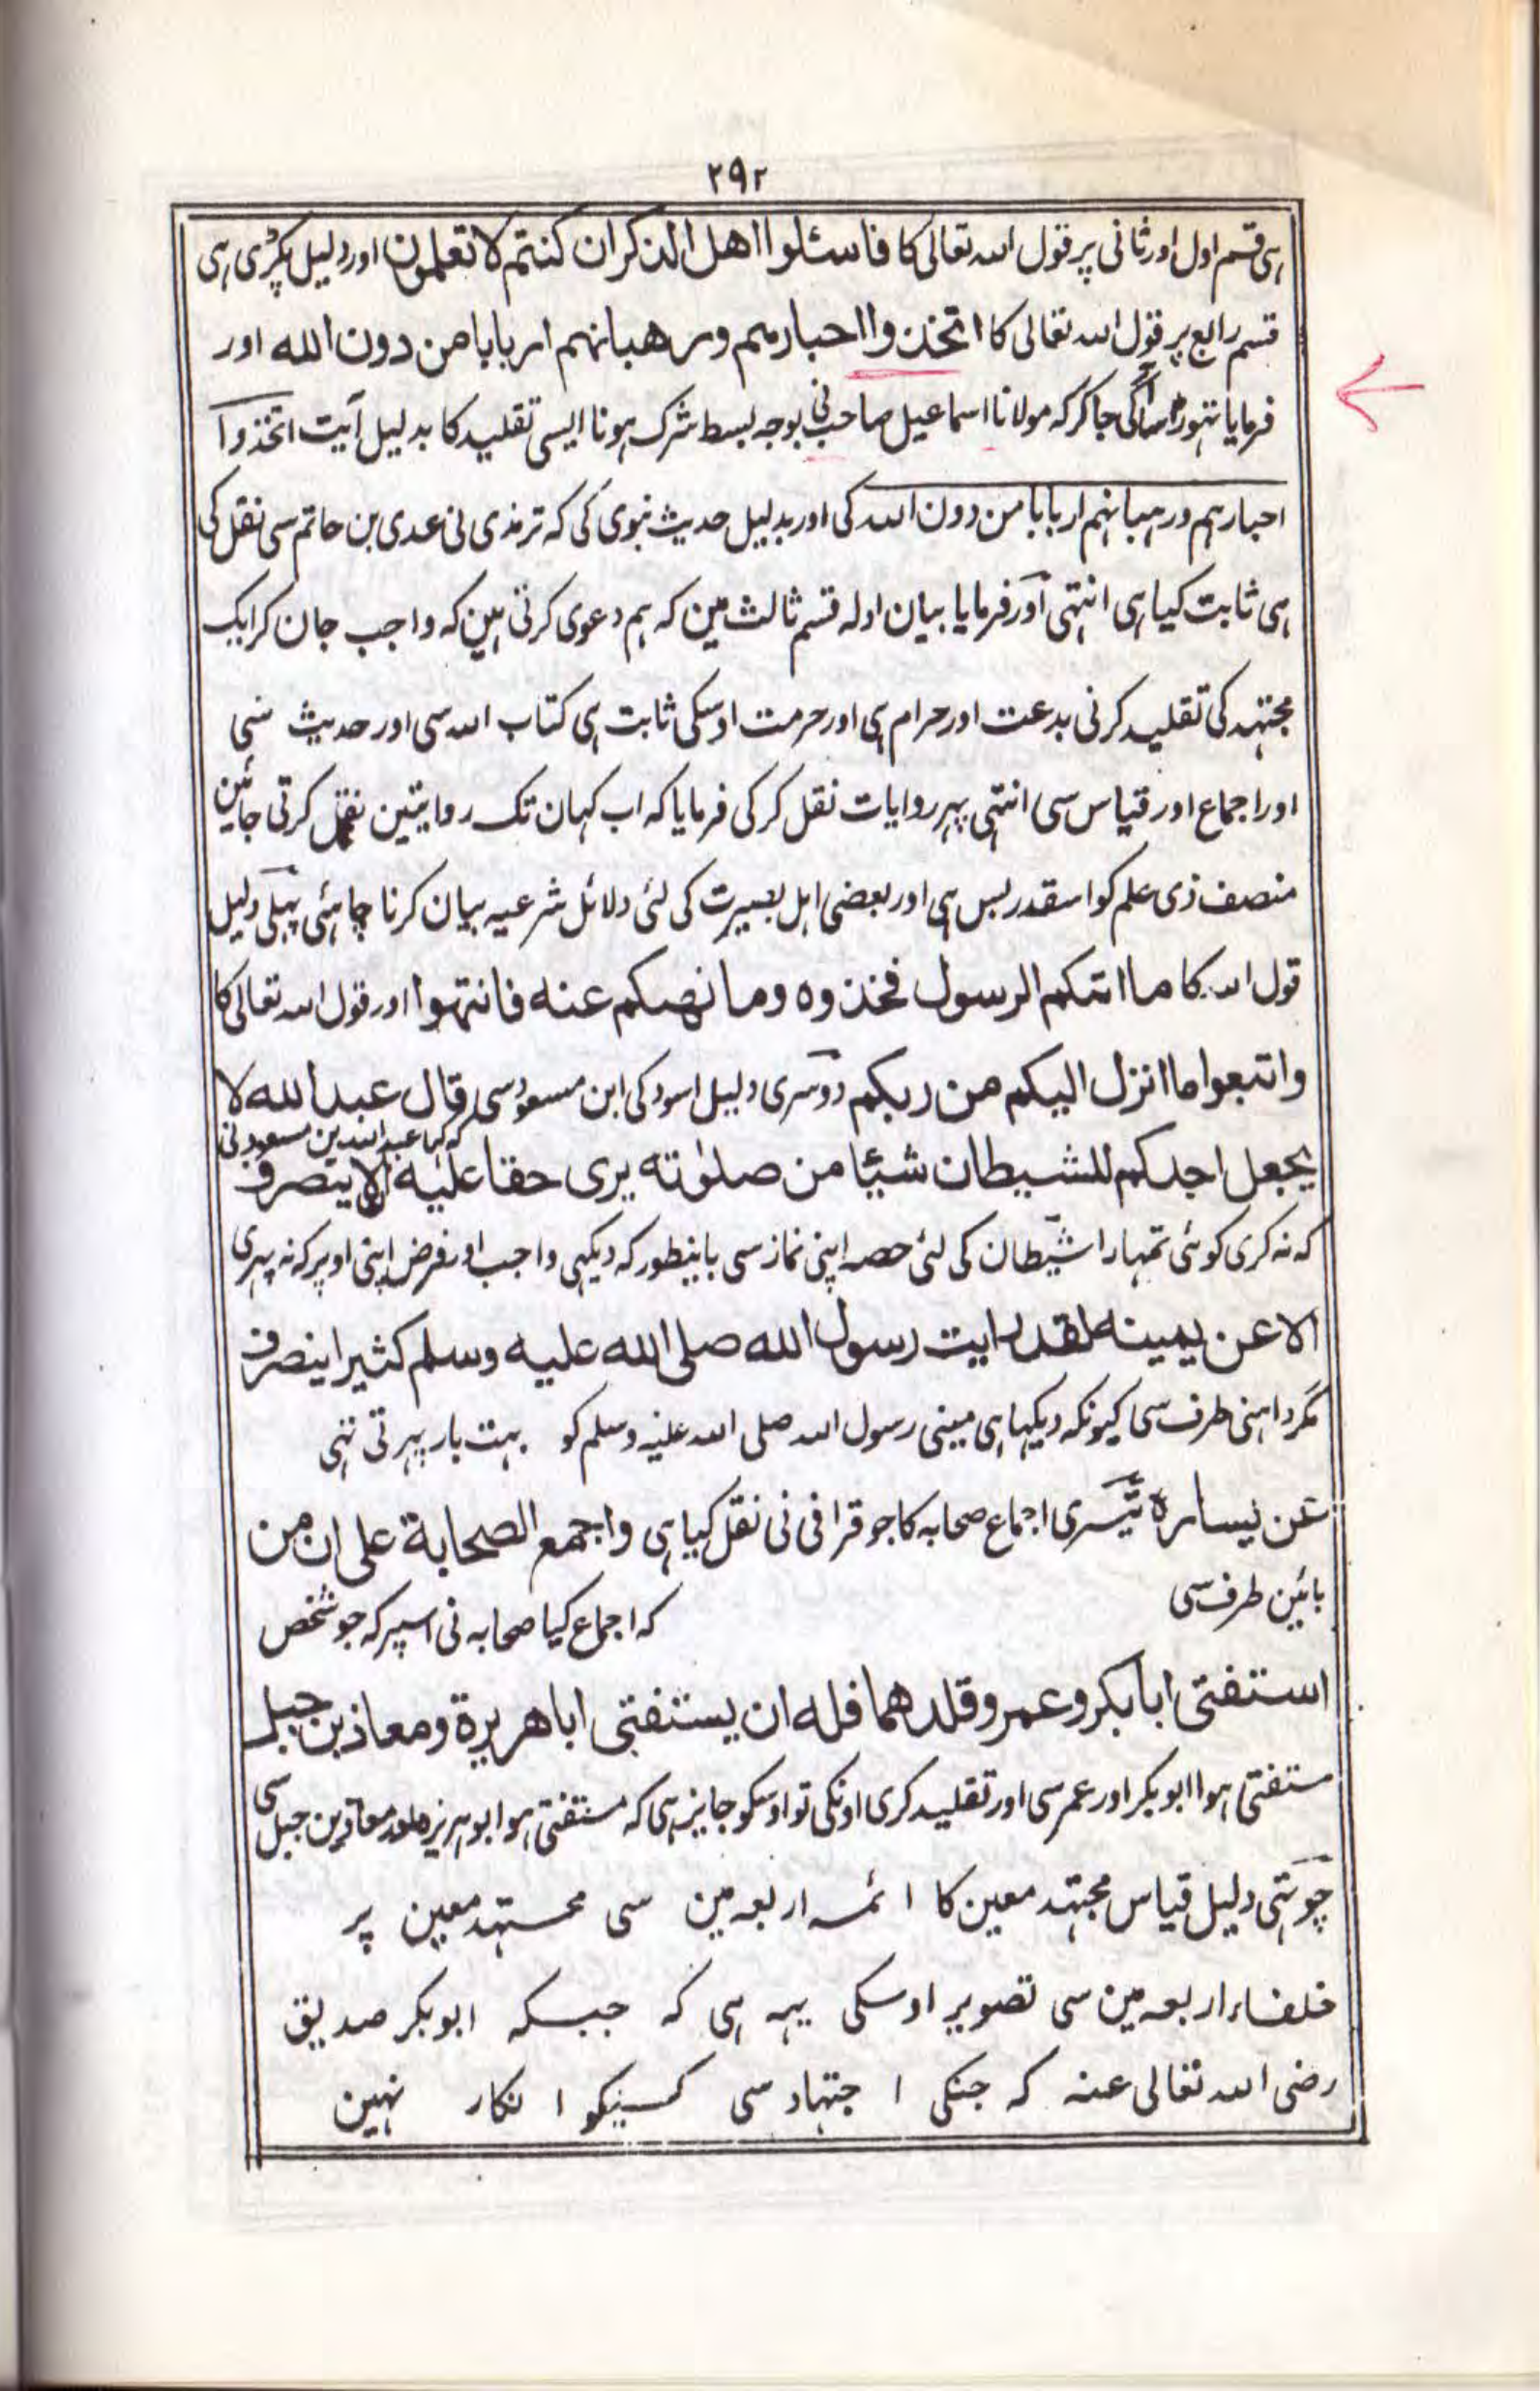 ۲۹۲
ہی قسم اول اور ثانی پر قول اللہ تعالی کا فاسئلوا اهل الذكر ان كنتم لا تعلمون اور دلیل پکڑی ہی
قسم رابع پر قول اللہ تعالی کا اتخذوا احبارهم ورهبانهم اربابا من دون الله اور
فرمایا تہوڑا سا آگی جا کر کہ مولانا اسماعیل صاحب نی بوجہ بسط شرک ہونا ایسی تقلید کا بدلیل آیت اتخذوا
احبارہم ورہبانہم اربابا من دون اللہ کی اور بدلیل حدیث نبوی کی کہ ترمذی نی عدی بن حاتم سی نقل کی
ہی ثابت کیا ہی انتہی اور فرمایا بیان ادلہ قسم ثالث مین کہ ہم دعوی کرتی ہین کہ واجب جان کر ایک
مجتہد کی تقلید کرنی بدعت اور حرام ہی اور حرمت اوسکی ثابت ہی کتاب اللہ سی اور حدیث سی
اور اجماع اور قیاس سی انتہی پہر روایات نقل کر کی فرمایا کہ اب کہان تک روایتین نقل کرتی جائین
منصف ذی علم کو اسقدر بس ہی اور بعضی اہل بصیرت کی لئی دلائل شرعیہ بیان کرنا چاہئی پہلی دلیل
قول اللہ کا ما اتىكم الرسول فخذوه وما نهىكم عنه فانتهوا اور قول اللہ تعالی کا
واتبعوا ما انزل اليكم من ربكم دوسری دلیل اسود کی ابن مسعود سی قال عبد الله لا
کہ کہا عبد اللہ بن مسعود نی
يجعل احدكم للشيطان شيئا من صلوٰته يرى حقا عليه الا ينصرف
کہ نہ کری کوئی تمہارا شیطان کی لئی حصہ اپنی نماز سی باینطور کہ دیکہی واجب اور فرض اپنی اوپر کہ نہ پہری
الا عن يمينه لقد رايت رسول الله صلى الله عليه وسلم كثيرا ينصرف
مگر داہنی طرف سی کیونکہ دیکہا ہی مینی رسول اللہ صلی اللہ علیہ وسلم کو بہت بار پہرتی تہی
عن يساره تیسری اجماع صحابہ کا جو قرافی نی نقل کیا ہی واجمع الصحابة على ان من
بائین طرف سی کہ اجماع کیا صحابہ نی اسپر کہ جو شخص
استفتى ابا بكر وعمر وقلدهما فله ان يستفتى ابا هريرة ومعاذ بن جبل
مستفتی ہوا ابو بکر اور عمر سی اور تقلید کری اونکی تو اوسکو جایز ہی کہ مستفتی ہو ابو ہریرہ اور معاذ بن جبل سی
چوتہی دلیل قیاس مجتہد معین کا ائمہ اربعہ مین سی مجتہد معین پر
خلفاء اربعہ مین سی تصویر اوسکی یہہ ہی کہ جبکہ ابوبکر صدیق
رضی اللہ تعالی عنہ کہ جنکی اجتہاد سی کسیکو انکار نہین